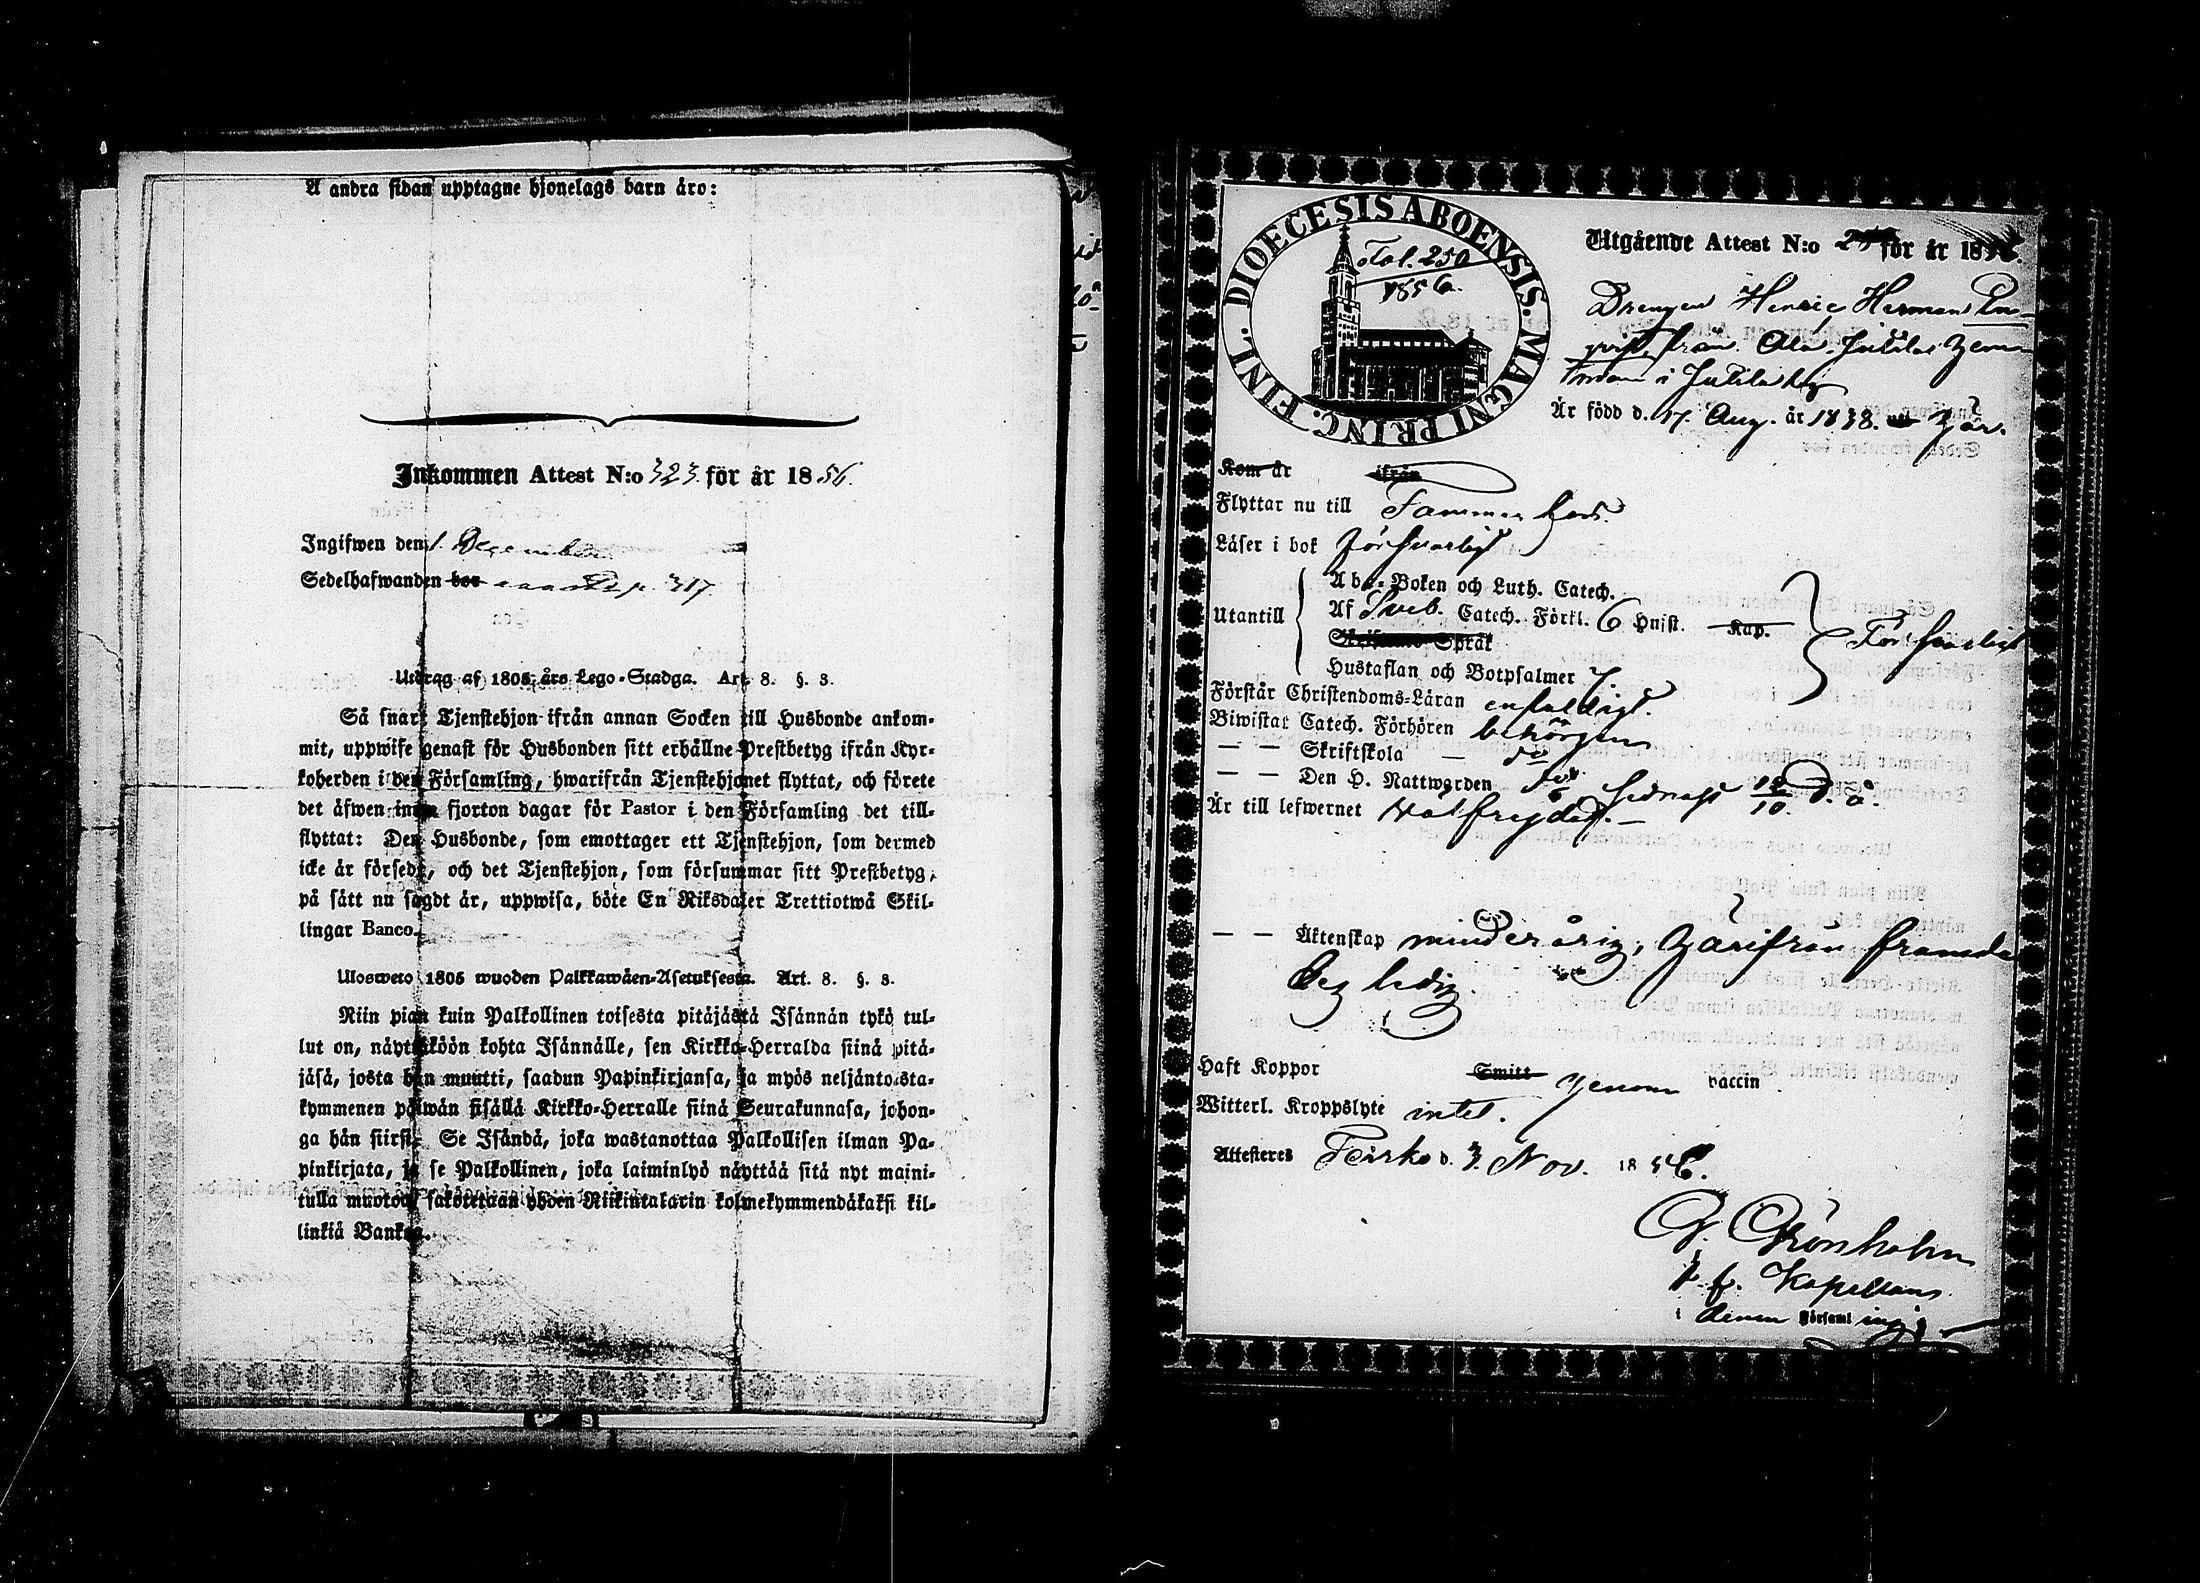 A andra sidan upptagne hjonelags barn äro:
Inkommen Attest N:o 323 för år 1856.
Ingifwen den 1. December
Sedelhafwanden bor p. 317
Utdrag af 1805 års Lego-Stadga. Art. 8. §. 3.
Så snart Tjenstehjon ifrån annan Socken till Husbonde ankom-
mit, uppwise genast för Husbonden sitt erhållne Prestbetyg ifrån Kyr-
koherden i den Församling, hwarifrån Tjenstehjonet flyttat, och förete
det äfwen inom fjorton dagar för Pastor i den Församling det till-
flyttat: Den Husbonde, som emottager ett Tjenstehjon, som dermed
icke är försedt, och det Tjenstehjon, som försummar sitt Prestbetyg,
på sätt nu sagdt är, uppwisa, böte En Riksdaler Trettiotwå Skil-
lingar Banco.
Ulosweto 1805 wuoden Palkkawäen-Asetuksesta. Art. 8. §. 3.
Niin pian kuin Palkollinen toisesta pitäjästä Isännän tykö tul-
lut on, näyttäköön kohta Isännälle, sen Kirkko-Herralda siinä pitä-
jäsä, josta hän muutti, saadun Papinkirjansa, ja myös neljäntoista-
kymmenen päiwän sisällä Kirkko-Herralle siinä Seurakunnasa, johon-
ga hän siirsi. Se Isändä, joka wastanottaa Palkollisen ilman Pa-
pinkirjata, ja se Palkollinen, joka laiminlyö näyttää sitä nyt maini-
tulla muotoa, sakotetaan yhden Riikintalarin kolmekymmendäkaksi kil-
linkiä Bankoa.
DIOECESIS ABOENSIS. MAGNI PRINC. FINL.
Fol. 250
1856.
Utgående Attest N:o för år 1856.
Drengen Henric Herman En-
qvist, från Ala Jutila
i Jutila by
Är född d. 17. Aug. år 1838.
Kom år ifrån
Flyttar nu till Tammerfors.
Läser i bok försvarligt
Utantill
Abc-Boken och Luth. Catech.
Af Sveb. Catech. Förkl. 6 Hufst. Kap.
Språk
Hustaflan och Botpsalmer 7.
Försvarligt
Förstår Christendoms-Läran enfaldigt.
Biwistat Catech. Förhören behörigen
— — Skriftskola — do
— — Den H. Nattwarden do senast 12/10 d. å.
Är till lefwernet Välfrejdad.
— — Äktenskap minderårig, härifrån framde-
les ledig.
Haft Koppor Smitt genom vaccin
Witterl. Kroppslyte intet.
Attesteres d. 3. Nov. 1856.
G. Grönholm
t. f. Kapellans
i denna Församling.